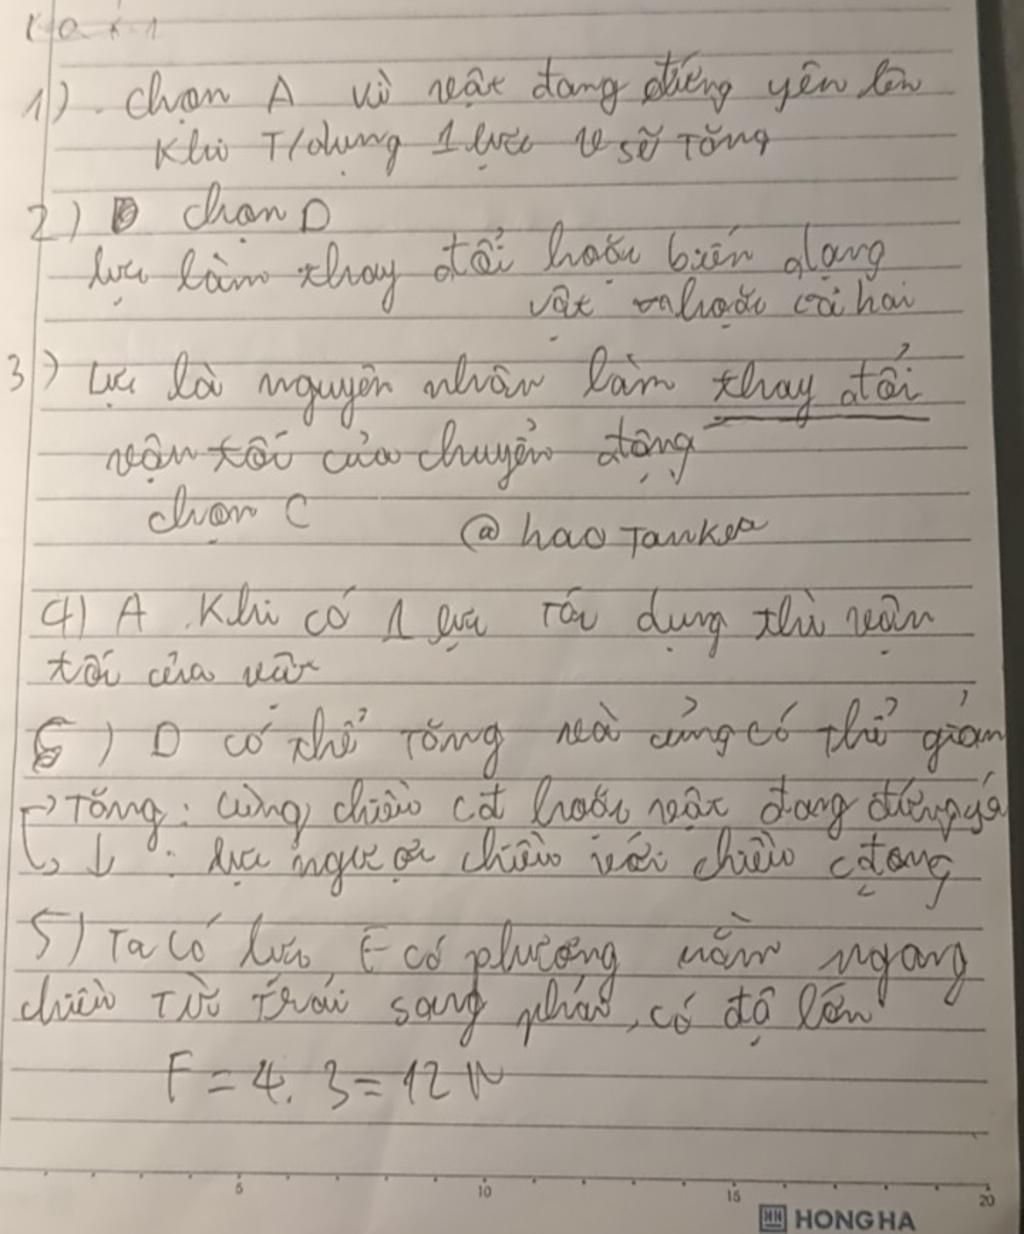 1) . chọn A vì vật đang đứng yên lên
khi T/dụng 1 lực v sẽ Tăng
2) chọn D
lực làm thay đổi hoặc biến dạng
vật hoặc cả hai
3) Lực là nguyên nhân làm thay đổi
vận tốc của chuyển động
chọn C
@haoTanker
4) A . Khi có 1 lực Tác dụng thì vận
tốc của vật
6) D có thể Tăng và củng có thể giảm
→ Tăng : cùng chiều cđ hoặc vật đang đứng yê
↳ ↓ : lực ngược chiều với chiều cđộng
5) Ta có lực F có phương nằm ngang
chiều Từ trái sang phải, có độ lớn
F = 4. 3 = 12 N
5 10 15 20
HONG HA